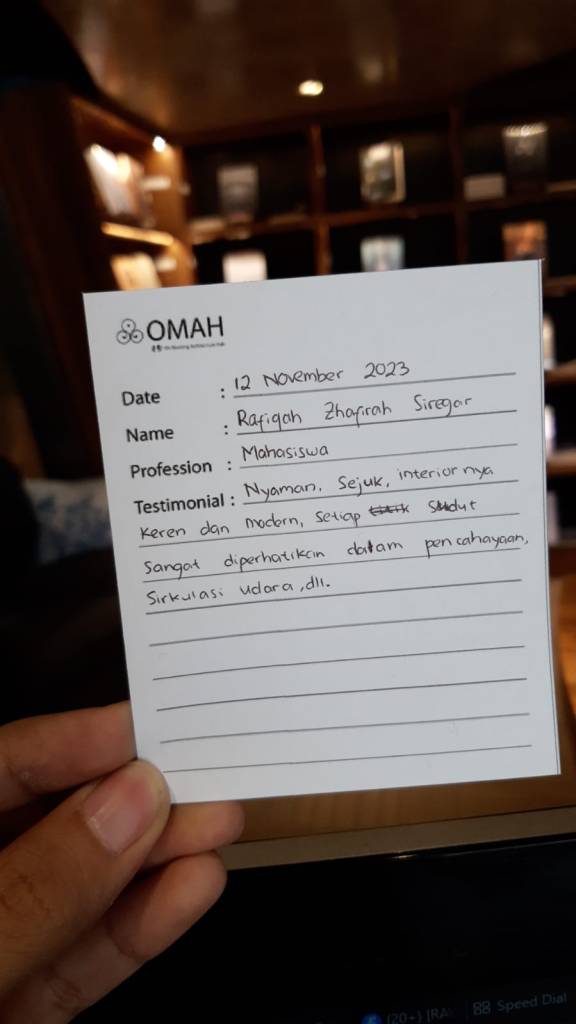 OMAH
Date : 12 November 2023
Name : Rafiqah Zhafirah Siregar
Profession : Mahasiswa
Testimonial : Nyaman, Sejuk, interior nya
Keren dan modern, setiap sudut
Sangat diperhatikan dalam pencahayaan,
Sirkulasi udara, dll.
(20+) [RA
Speed Dial